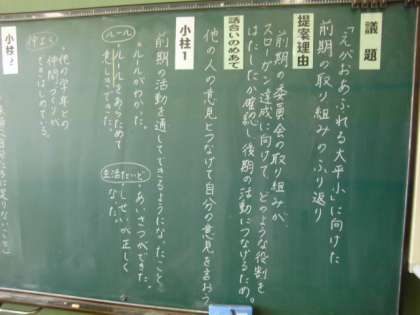 議題
「えがおあふれる大平小」に向けた
前期の取り組みのふり返り
提案理由
前期の委員会の取り組みが、
スローガン達成に向けて、どのような役割を
はたしたか確認し後期の活動につなげるため。
話合いのめあて
他の人の意見とつなげて自分の意見を言おう
小柱1
前期の活動を通してできるようになったこと
ルール
・ルールがわかった。
・ルールをあらためて
生活たいど
・あいさつができた。
・しせいが正しく
なった。
小柱2
仲よく
・他の学年との
仲間づくりが